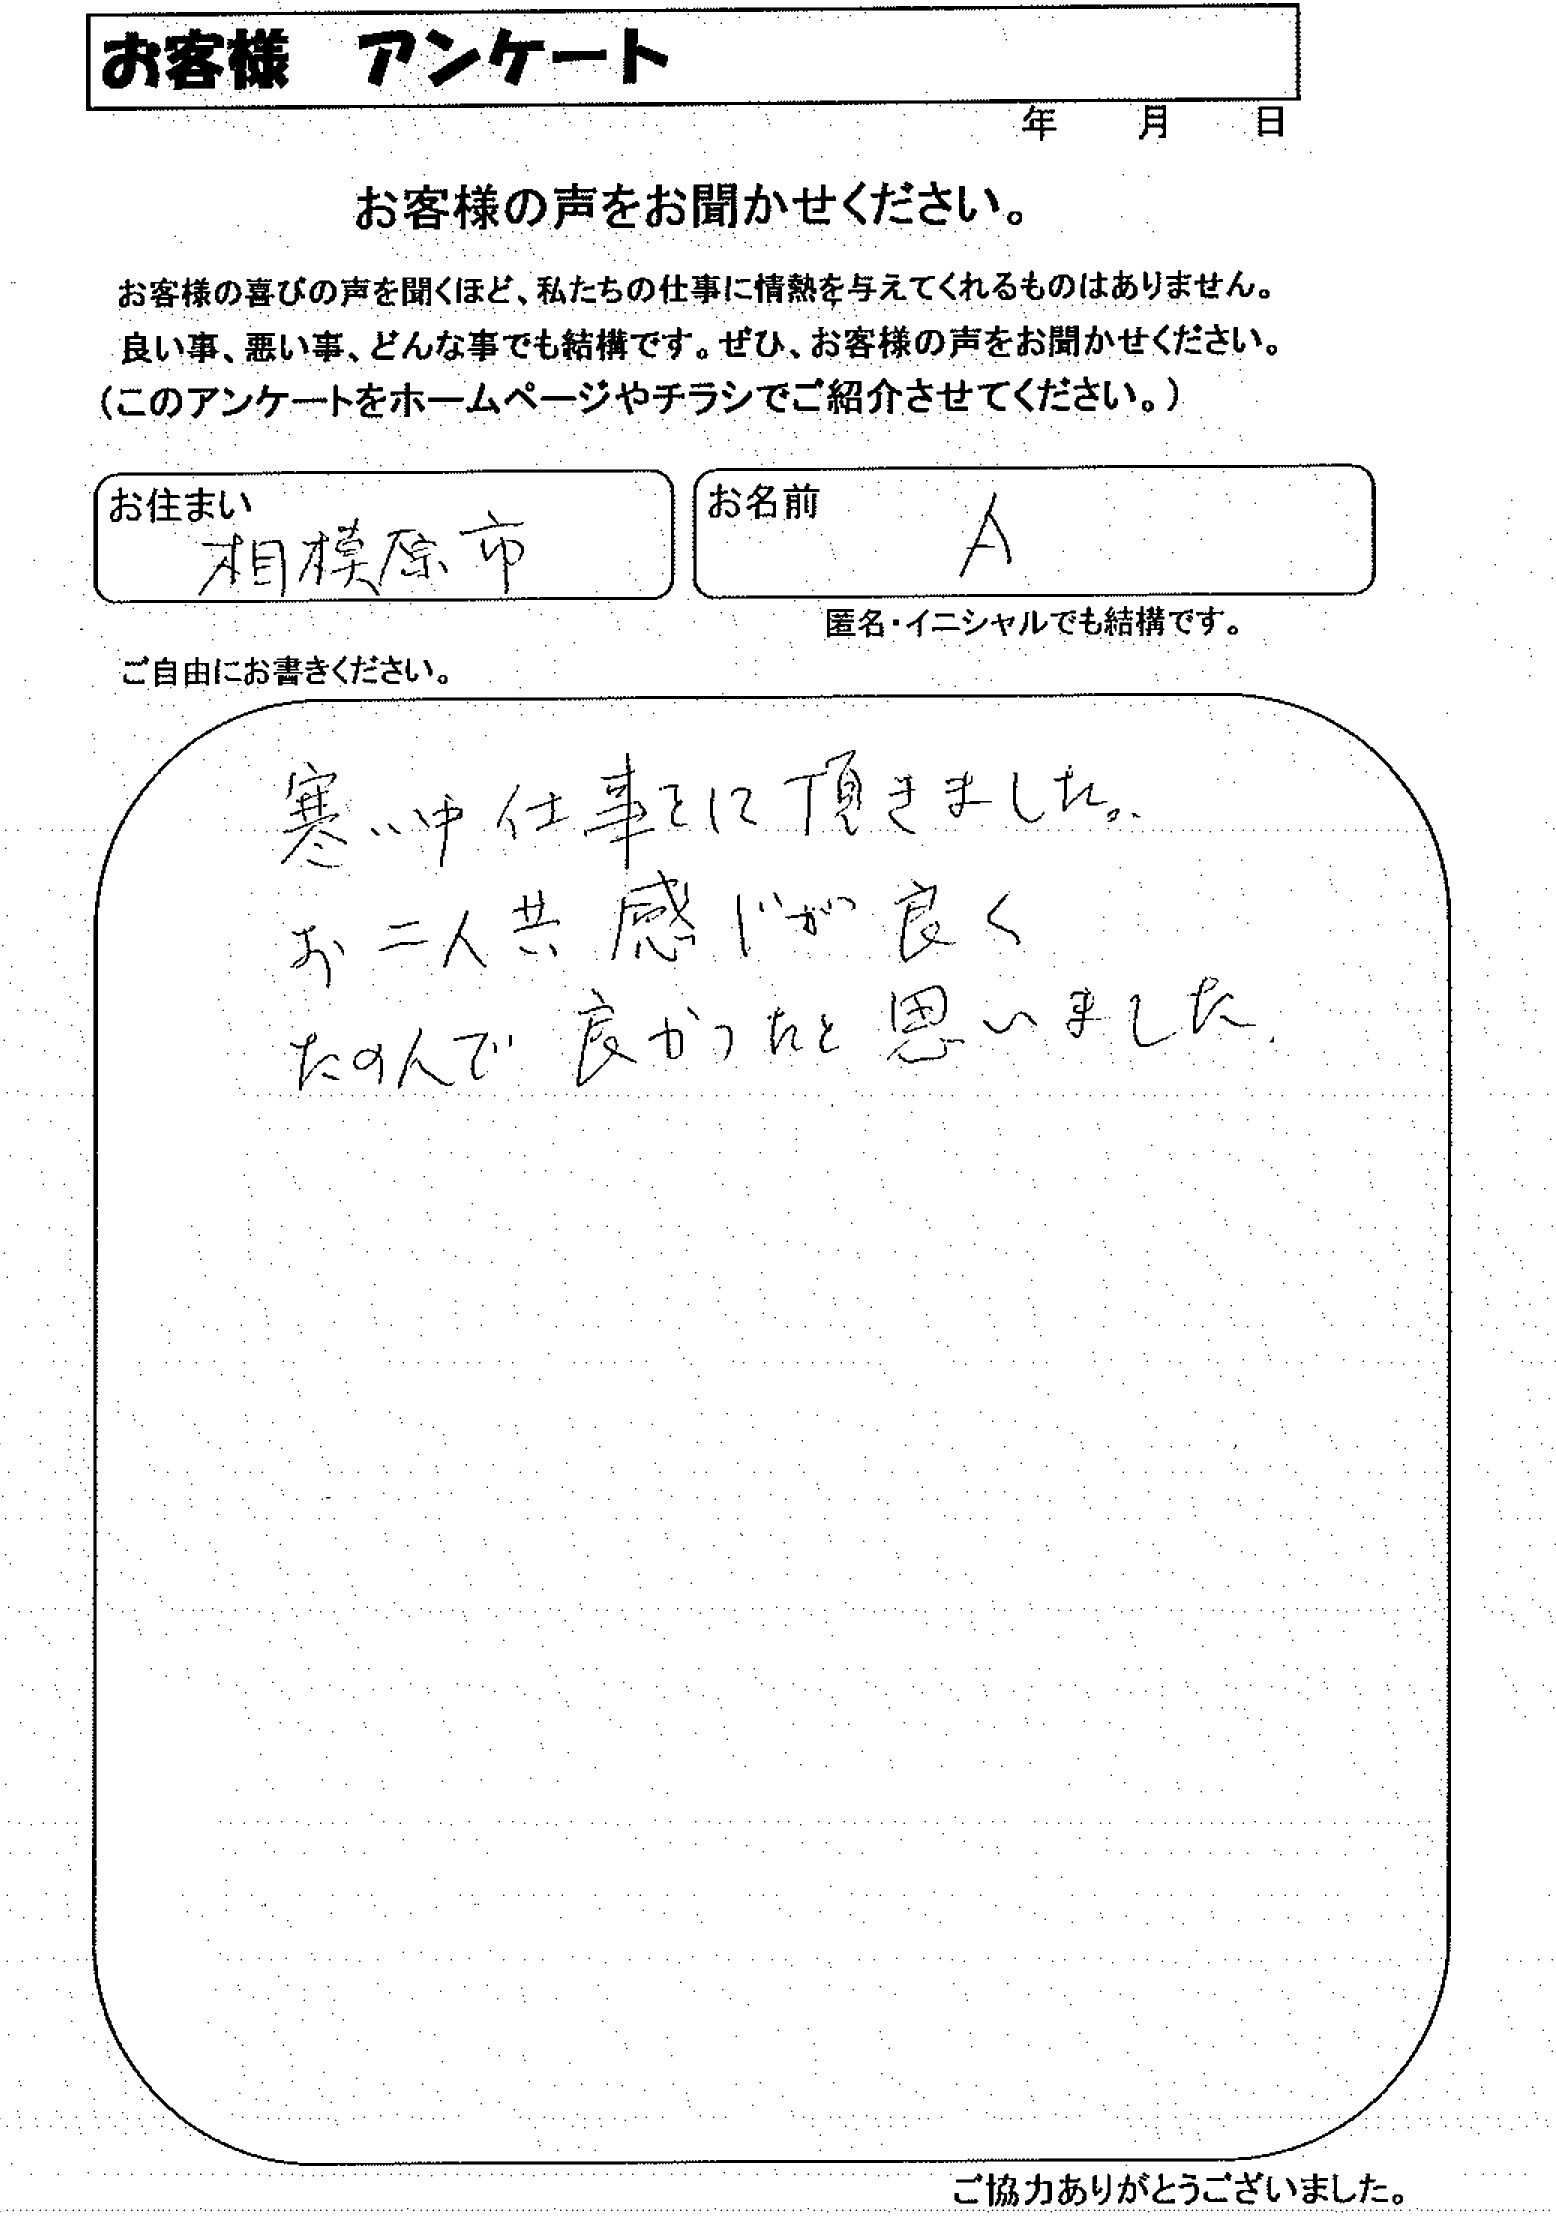 お客様 アンケート
年 月 日
お客様の声をお聞かせください。
お客様の喜びの声を聞くほど、私たちの仕事に情熱を与えてくれるものはありません。
良い事、悪い事、どんな事でも結構です。ぜひ、お客様の声をお聞かせください。
(このアンケートをホームページやチラシでご紹介させてください。)
お住まい
相模原市
お名前
A
匿名・イニシャルでも結構です。
ご自由にお書きください。
寒い中 仕事 頂きました。
お二人共 感じが 良く
たのんで 良かったと 思いました.
ご協力ありがとうございました。